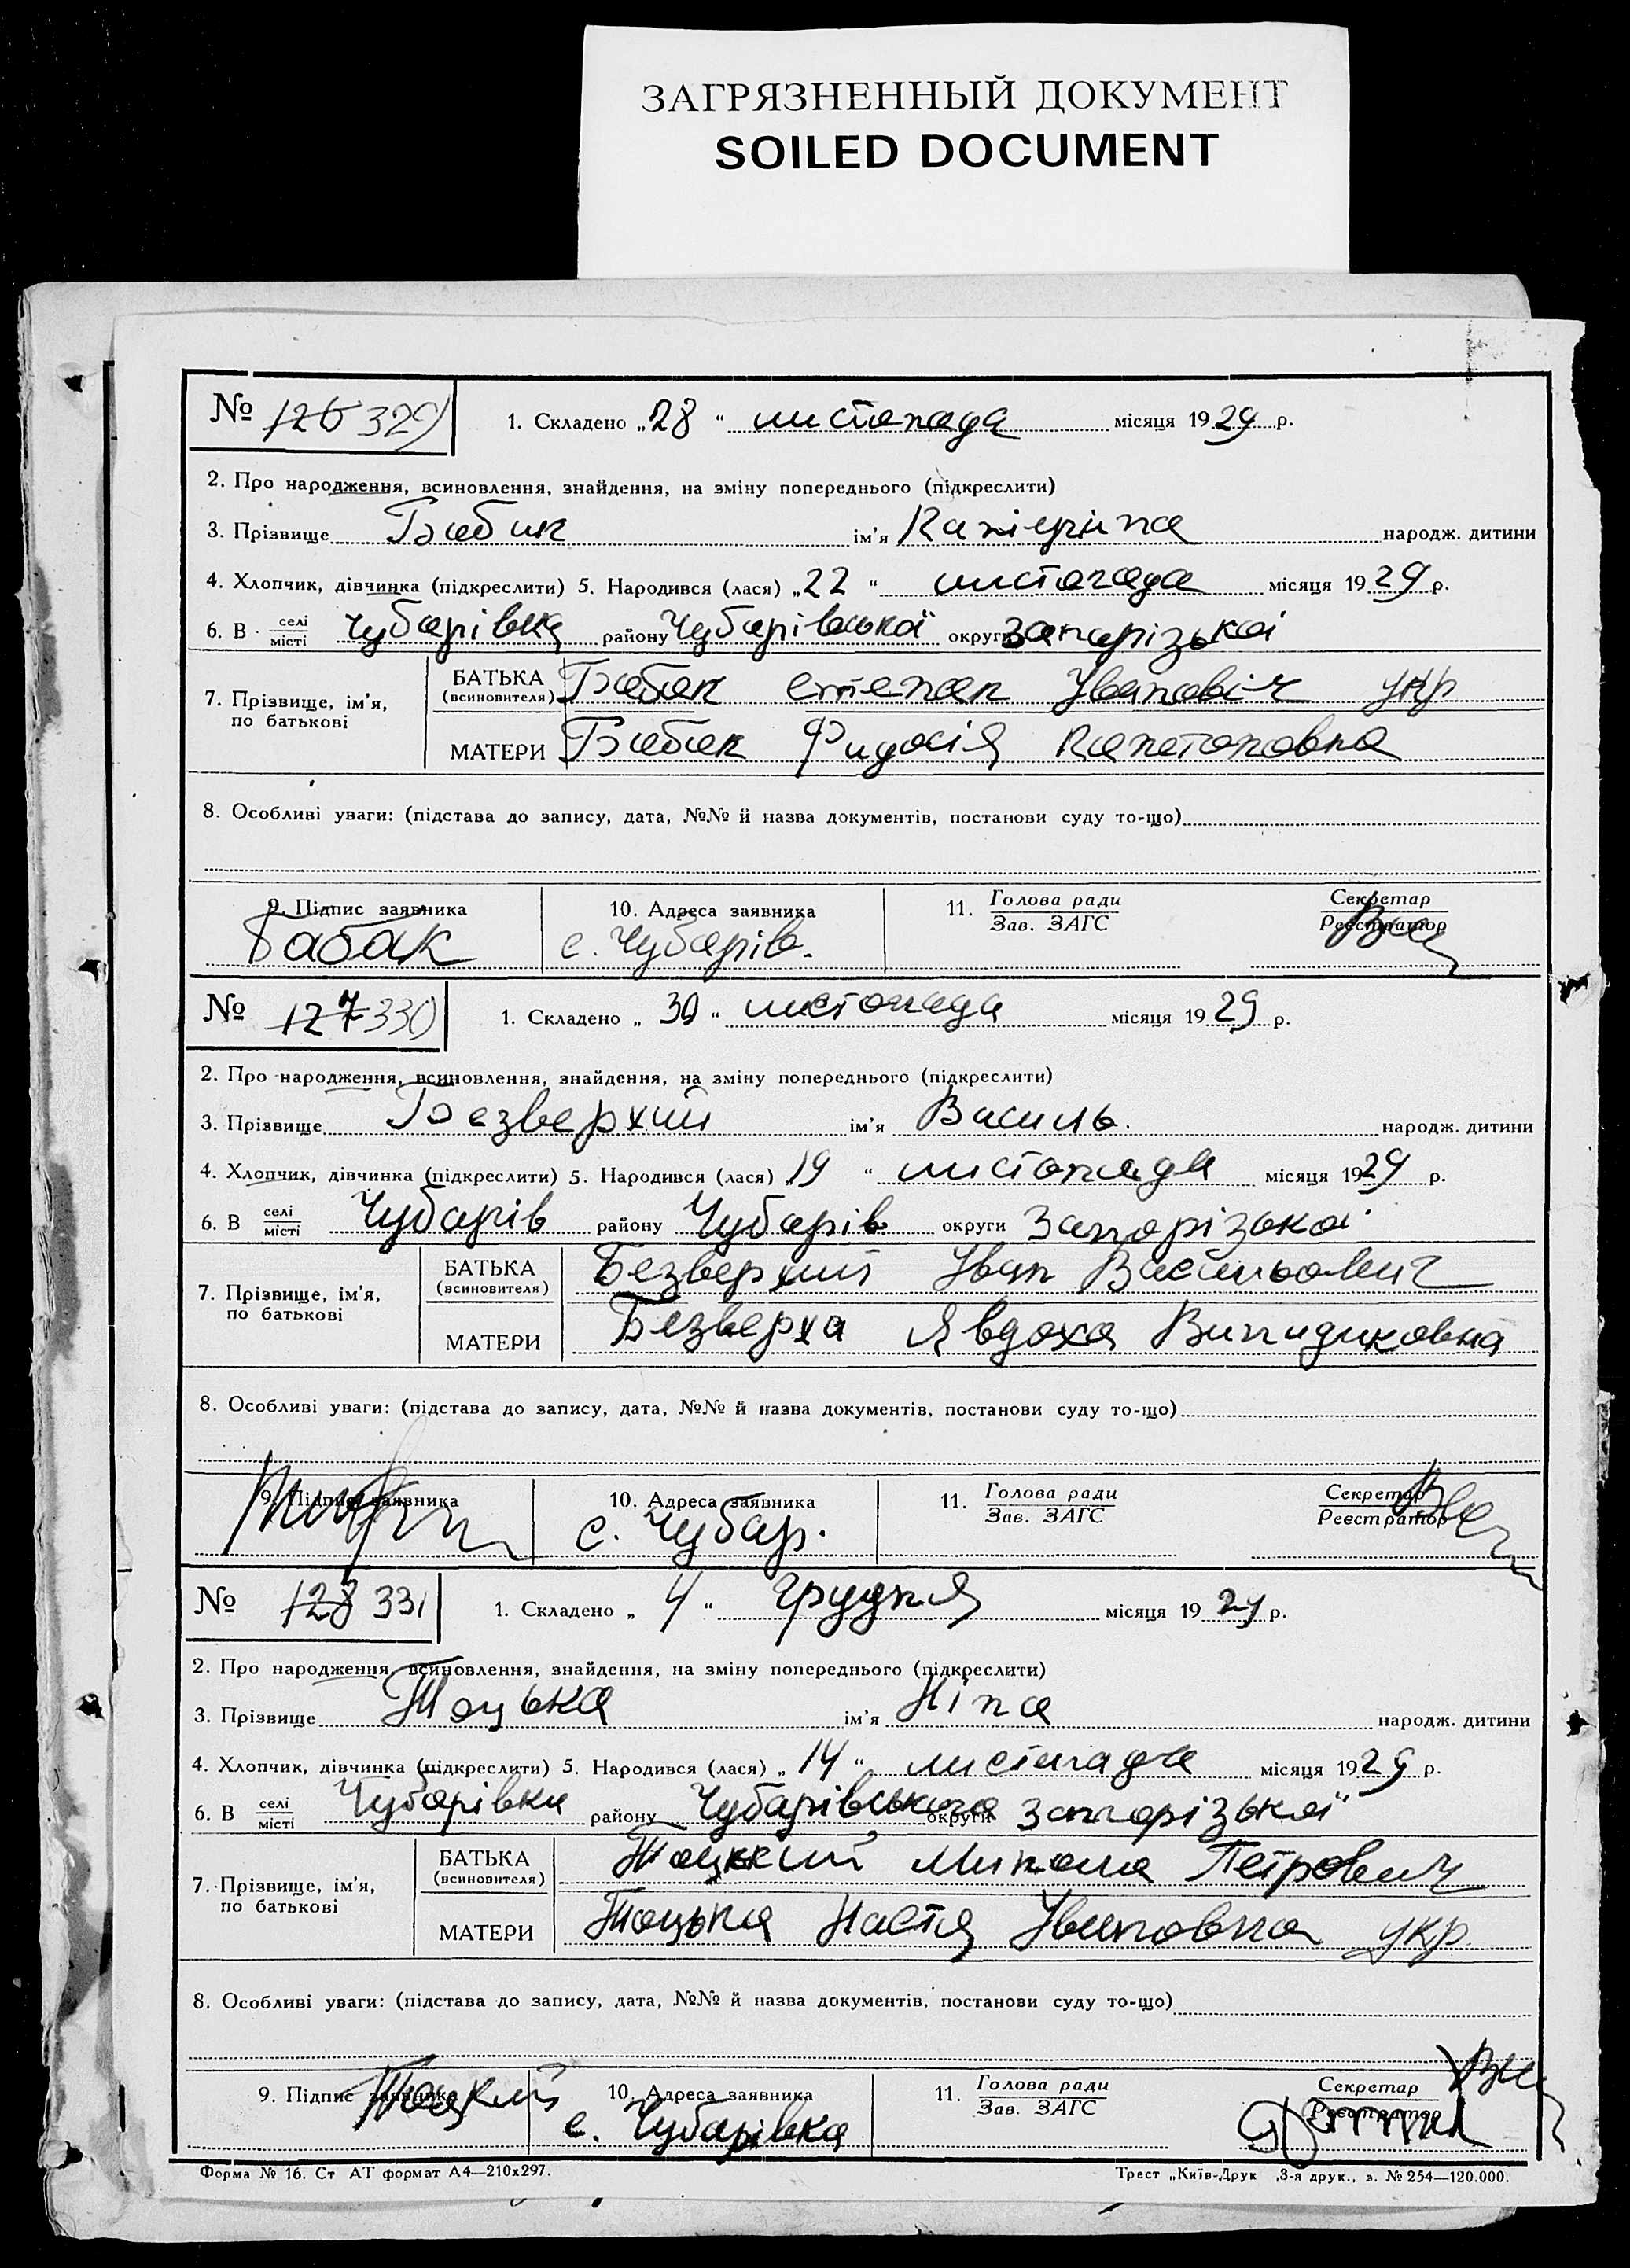 ЗАГРЯЗНЕННЫЙ ДОКУМЕНТ
SOILED DOCUMENT
№ 126 329 1. Складено „28 “ листопада місяця 1929 р.
2. Про народження, всиновлення, знайдення, на зміну попереднього (підкреслити)
3. Прізвище Бабик ім’я народж. дитини
4. Хлопчик, дівчинка (підкреслити) 5. Народився (лася) „22 “ листопада місяця 1929 р.
6. В селі/місті Чубарівка району Чубарівської округи Запорізької
7. Прізвище, ім’я, по батькові БАТЬКА (всиновителя) Бабак Степан Іванович укр
МАТЕРИ Бабак Фидосія
8. Особливі уваги: (підстава до запису, дата, №№ й назва документів, постанови суду то-що)
9. Підпис заявника 10. Адреса заявника 11. Голова ради/Зав. ЗАГС Секретар/Реєстратор
Бабак с. Чубарів.
№ 127 330 1. Складено „ 30 “ листопада місяця 1929 р.
2. Про народження, всиновлення, знайдення, на зміну попереднього (підкреслити)
3. Прізвище Безверхий ім’я Василь. народж. дитини
4. Хлопчик, дівчинка (підкреслити) 5. Народився (лася) „19 “ листопада місяця 1929 р.
6. В селі/місті Чубарів району Чубарів. округи Запорізької
7. Прізвище, ім’я, по батькові БАТЬКА (всиновителя) Безверхий Іван Васильович
МАТЕРИ Безверха Явдоха
8. Особливі уваги: (підстава до запису, дата, №№ й назва документів, постанови суду то-що)
9. Підпис заявника 10. Адреса заявника 11. Голова ради/Зав. ЗАГС Секретар/Реєстратор
с. Чубар.
№ 128 331 1. Складено „ 4 “ грудня місяця 1929 р.
2. Про народження, всиновлення, знайдення, на зміну попереднього (підкреслити)
3. Прізвище Тоцька ім’я Ніна народж. дитини
4. Хлопчик, дівчинка (підкреслити) 5. Народився (лася) „ 14 “ листопада місяця 1929 р.
6. В селі/місті Чубарівки району Чубарівського округи Запорізької
7. Прізвище, ім’я, по батькові БАТЬКА (всиновителя) Тоцький Микола Петрович
МАТЕРИ Тоцька Настя Івановна укр.
8. Особливі уваги: (підстава до запису, дата, №№ й назва документів, постанови суду то-що)
9. Підпис заявника 10. Адреса заявника 11. Голова ради/Зав. ЗАГС Секретар/Реєстратор
Тоцкий с. Чубарівка
Форма № 16. Ст АТ формат А4—210х297. Трест „Київ-Друк ‚3-я друк., з. № 254—120.000.